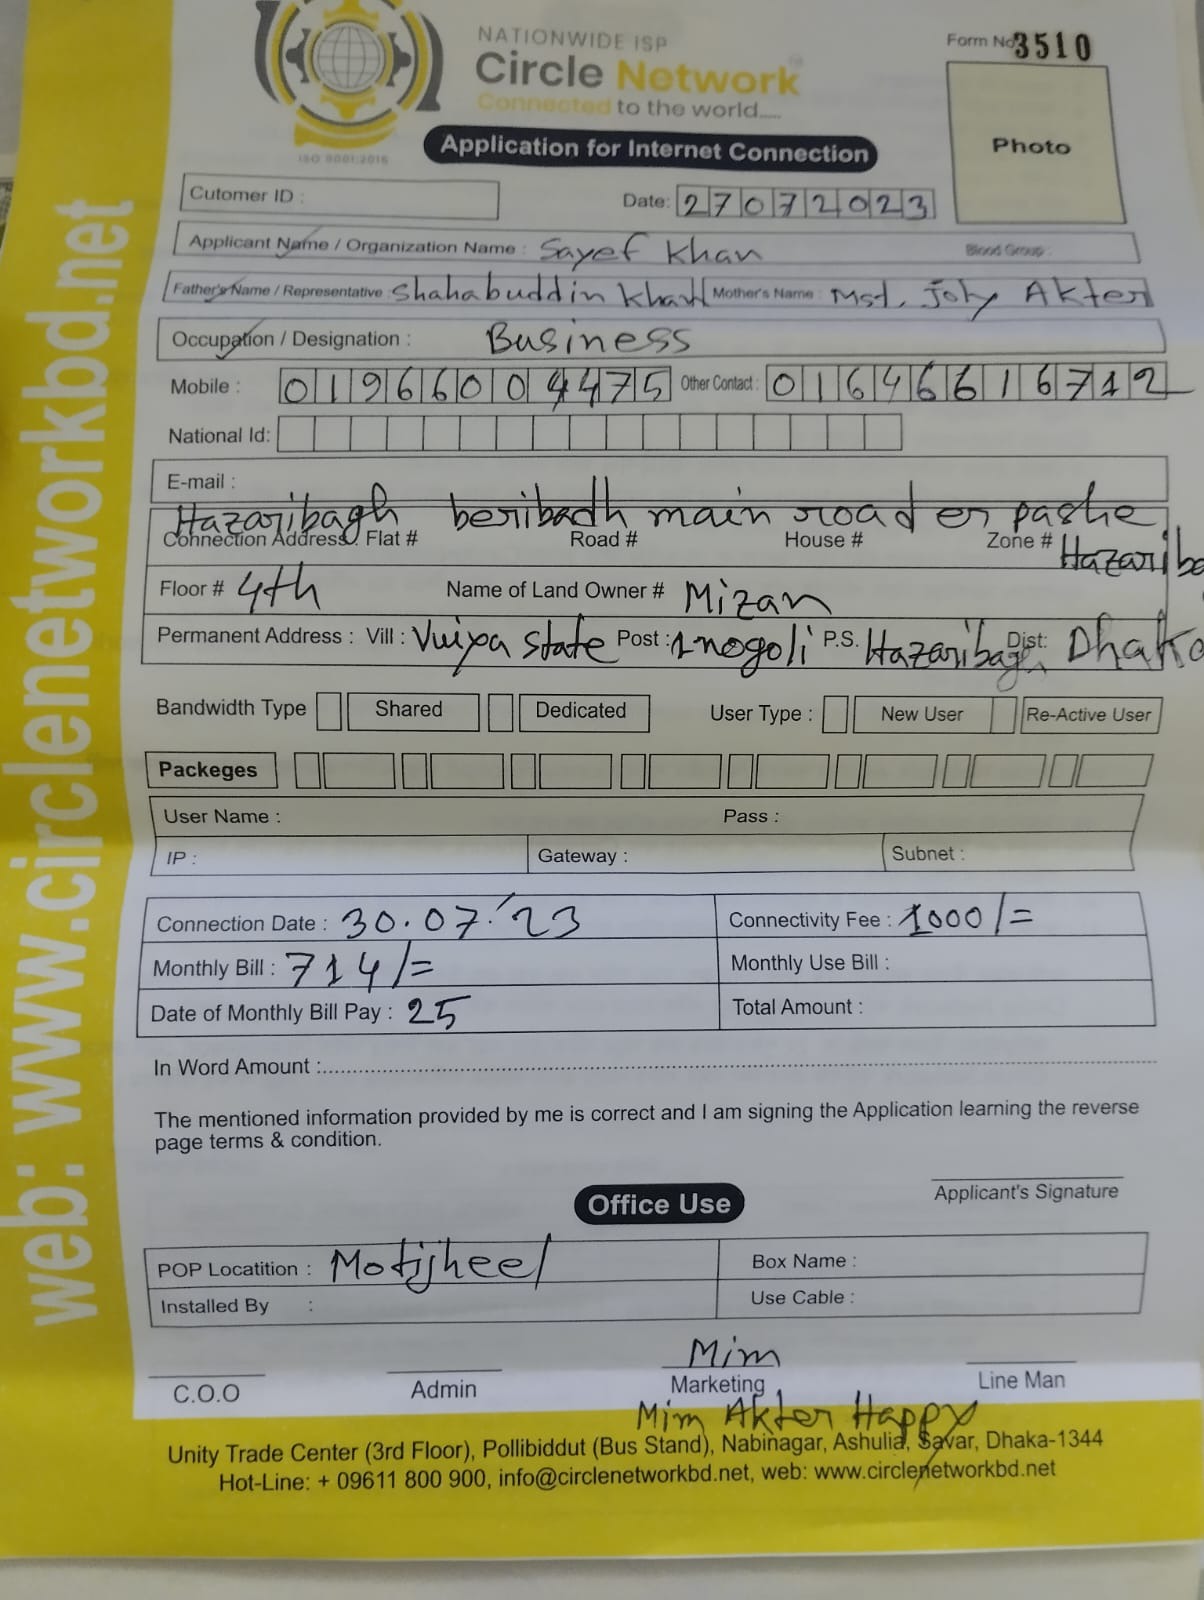 NATIONWIDE ISP
Circle Network
Connected to the world.....
ISO 9001:2015
Form No 3510
Photo
Application for Internet Connection
Cutomer ID :
Date: 27072023
Applicant Name / Organization Name : Sayef Khan Blood Group :
Father's Name / Representative : Shahabuddin Khan Mother's Name : Mst. Joly Akter
Occupation / Designation : Business
Mobile : 01966004475 Other Contact : 01646616712
National Id:
E-mail :
Hazaribagh beribadh main road er pashe
Connection Address: Flat # Road # House # Zone # Hazariba
Floor # 4th Name of Land Owner # Mizan
Permanent Address : Vill : Vuiya state Post : 1nogoli P.S. Hazaribagh Dist: Dhaka
Bandwidth Type Shared Dedicated User Type : New User Re-Active User
Packeges
User Name : Pass :
IP : Gateway : Subnet :
Connection Date : 30.07.'23 Connectivity Fee : 1000/=
Monthly Bill : 714/= Monthly Use Bill :
Date of Monthly Bill Pay : 25 Total Amount :
In Word Amount :
The mentioned information provided by me is correct and I am signing the Application learning the reverse
page terms & condition.
Applicant's Signature
Office Use
POP Locatition : Motijheel Box Name :
Installed By : Use Cable :
Mim
C.O.O Admin Marketing Line Man
Mim Akter Happy
Unity Trade Center (3rd Floor), Pollibiddut (Bus Stand), Nabinagar, Ashulia, Savar, Dhaka-1344
Hot-Line: + 09611 800 900, info@circlenetworkbd.net, web: www.circlenetworkbd.net
web: www.circlenetworkbd.net